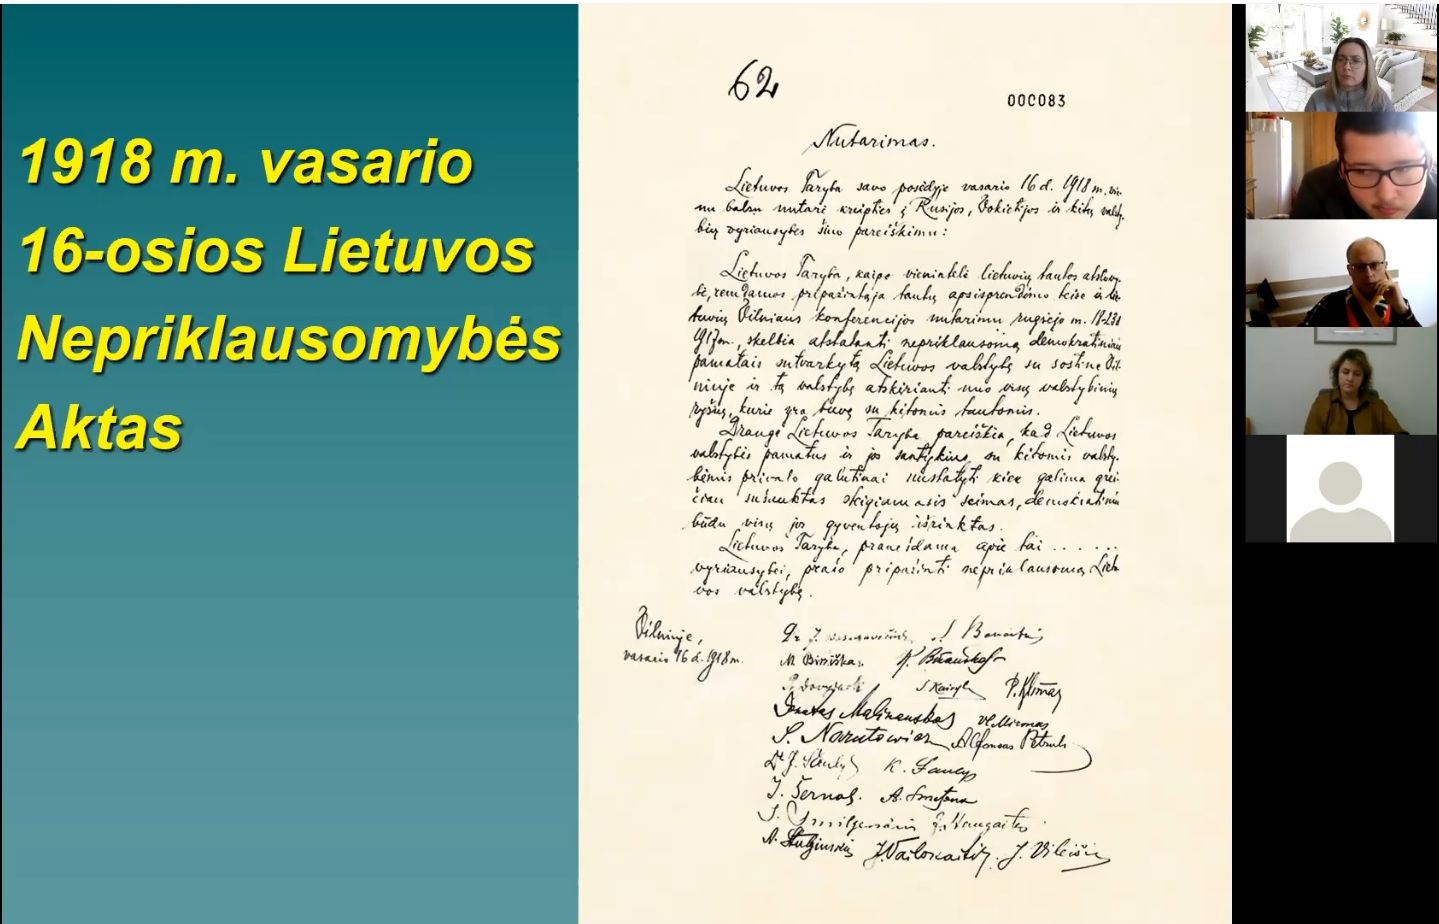 1918 m. vasario
16-osios Lietuvos
Nepriklausomybės
Aktas
62
000083
Nutarimas.
Lietuvos Taryba savo posėdyje vasario 16 d. 1918 m. vie-
nu balsu nutarė kreipties į Rusijos, Vokietijos ir kitų valsty-
bių vyriausybes šiuo pareiškimu:
Lietuvos Taryba, kaipo vienintelė lietuvių tautos atstovy-
bė, remdamos pripažintąja tautų apsisprendimo teise ir lie-
tuvių Vilniaus konferencijos nutarimu rugsėjo m. 18-23 d
1917 m., skelbia atstatanti nepriklausomą demokratiniais
pamatais sutvarkytą Lietuvos valstybę su sostine Vil-
niuje ir tą valstybę atskirianti nuo visų valstybinių
ryšių, kurie yra buvę su kitomis tautomis.
Drauge Lietuvos Taryba pareiškia, kad Lietuvos
valstybės pamatus ir jos santykius su kitomis valsty-
bėmis privalo galutinai nustatyti kiek galima grei-
čiau sušauktas steigiamasis seimas, demokratiniu
būdu visų jos gyventojų išrinktas.
Lietuvos Taryba, pranešdama apie tai . . . . . .
vyriausybei, prašo pripažinti nepriklausomą Lietu-
vos valstybę.
Vilniuje,
vasario 16 d. 1918 m.
Dr. J. Basanavičius S. Banaitis
M. Biržiška K. Bizauskas
P. Dovydaitis S. Kairys P. Klimas
Donatas Malinauskas Vl. Mironas
S. Narutowicz Alfonsas Petrulis
Dr J. Šaulys K. Šaulys
J. Šernas A. Smetona
J. Smilgevičius J. Staugaitis
A. Stulginskis J. Vailokaitis J. Vileišis